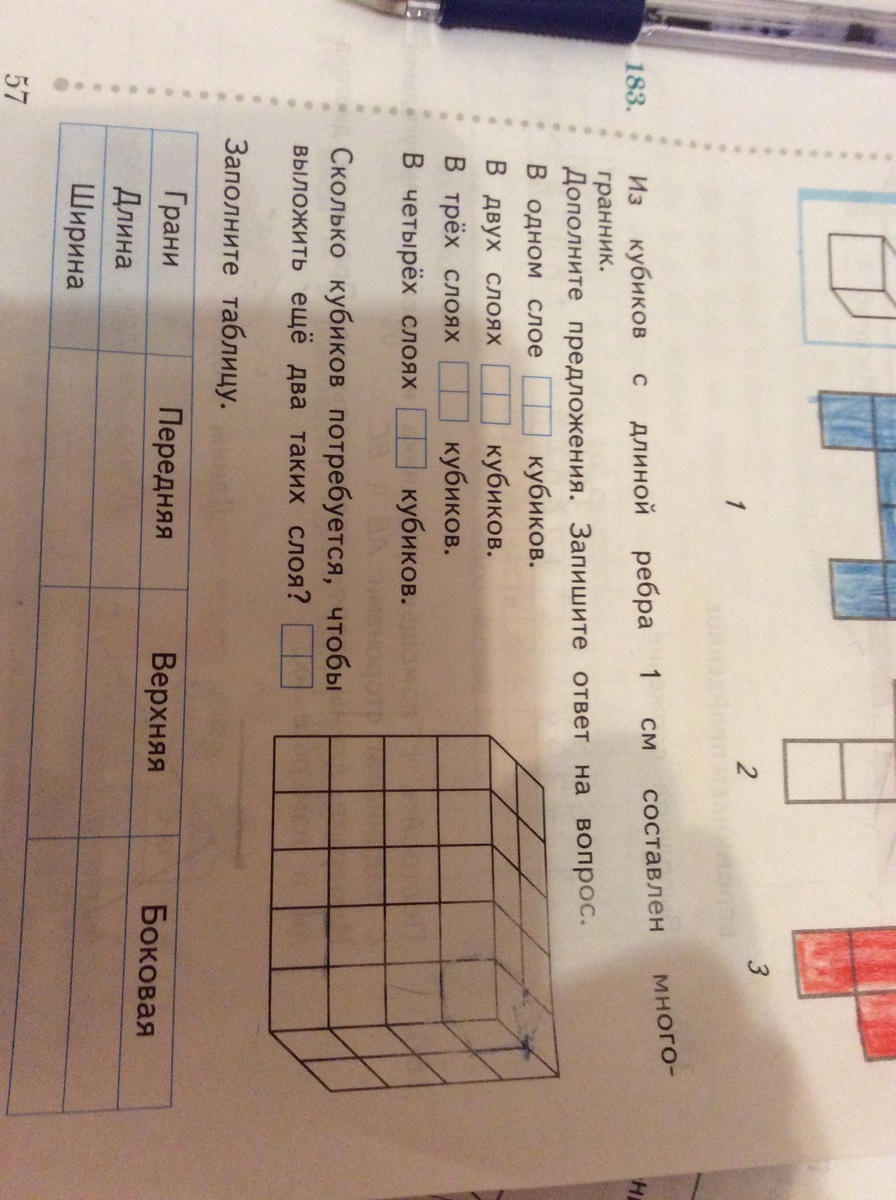 1 2 3
183. Из кубиков с длиной ребра 1 см составлен много-
гранник.
Дополните предложения. Запишите ответ на вопрос.
В одном слое кубиков.
В двух слоях кубиков.
В трёх слоях кубиков.
В четырёх слоях кубиков.
Сколько кубиков потребуется, чтобы
выложить ещё два таких слоя?
Заполните таблицу.
Грани Передняя Верхняя Боковая
Длина
Ширина
57